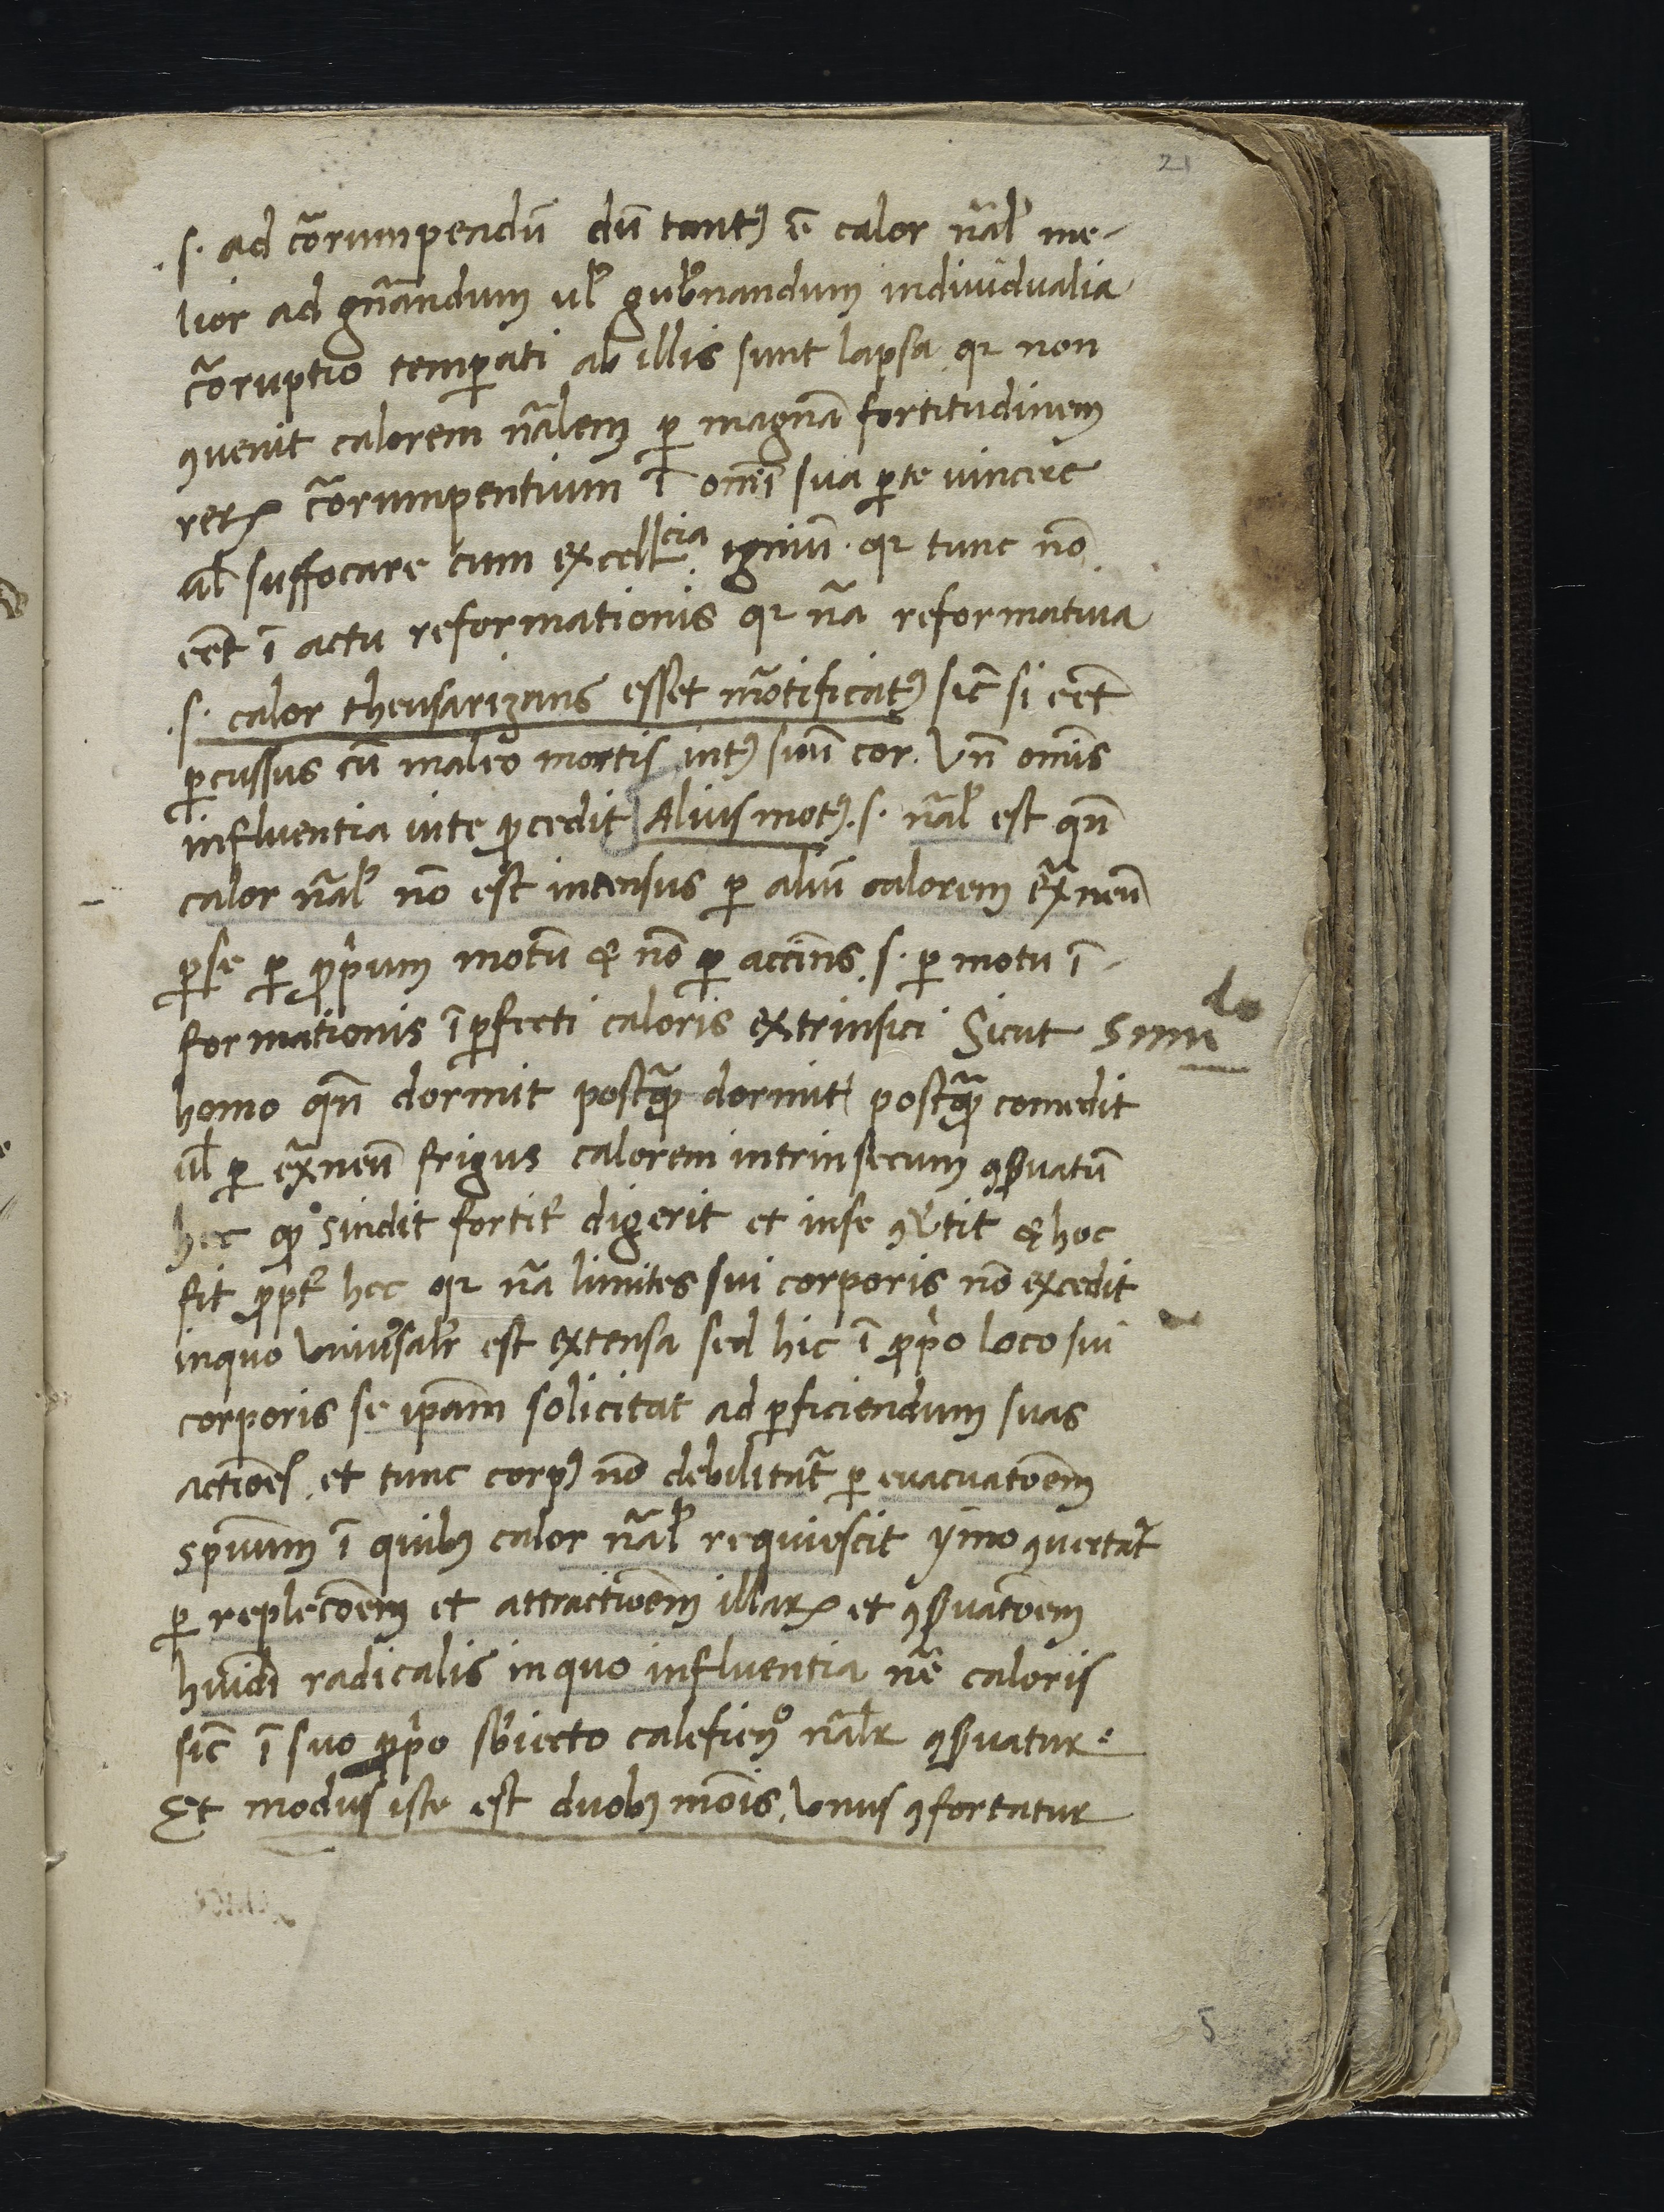 21
.s. ad cõrumpendũ dũ tantꝯ ẽ calor nãlꝰ me-
lior ad gñandum ul' gubꝰnandum individualia
cõruptio temꝑati ab illis sunt lapsa qr non
ꝯvenit calorem nãlem ꝑ magnã fortitudinem
rerꝝ cõrumpentium ĩ omĩ sua ꝑte vincere
al' suffocare cum excellcia igniũ. qr tunc nõ
eẽt ĩ actu reformationis qr nã reformativa
.s. calor thensarizans esset mõtificatꝯ sic̃ si eẽt
ꝑcussus cũ maleo mortis intꝯ suũ cor. Vñ omĩs
influentia vite ꝓcedit Alius motꝯ. s. nãlꝰ est qñ
calor nãlꝰ nõ est intensus ꝑ aliũ calorem ex̃neũ
ꝑse ꝑ ꝓp̃um motũ & nõ ꝑ accñs .s. ꝑ motu ĩ-
formationis ĩꝑfecti caloris extrinsici Sicut
do
homo qñ dormit postꝙ̃ dormit postꝙ̃ comedit
ul' ꝑ ex̃neũ frigus calorem intrinsecum ꝯẜvatũ
hec ꝙ° sindit fortitꝰ digerit et inse ꝯvꝰtit & hoc
fit ꝓptꝰ hec qr nã limites sui corporis nõ excedit
inquo univꝰsalr̃ est extensa sed hic ĩ ꝓp̃o loco sui
corporis se ipam̃ solicitat ad ꝑficiendum suas
actiões. et tunc corpꝯ nõ debilitat̃ ꝑ evacuatõem
spũum ĩ quibꝯ calor nãlꝰ requiescit ymo ꝯvertat̃
ꝑ replectõem et attractiõem illarꝝ et ꝯẜvatõem
huĩdi radicalis inquo influentia nẽ caloris
sic̃ ĩ suo ꝓp̃o sb̃iecto calefienꝯ° nãlr̃ ꝯẜvatur.
Et modus iste est duobꝯ mõis. Vnus ꝯfortatur
5